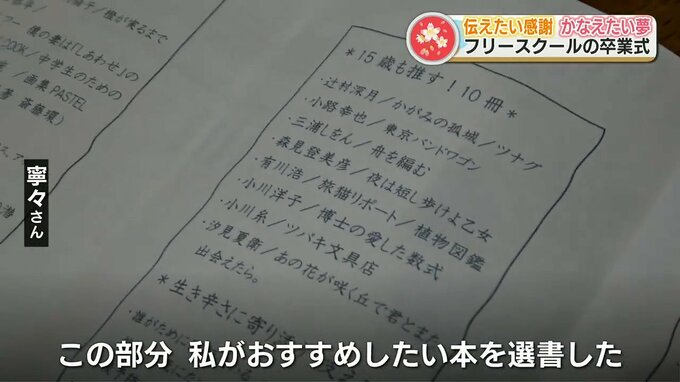 伝えたい感謝 かなえたい夢
フリースクールの卒業式
*15歳も推す!10冊*
・辻村深月/かがみの孤城/ツナグ
・小路幸也/東京バンドワゴン
・三浦しをん/舟を編む
・森見登美彦/夜は短し歩けよ乙女
・有川浩/旅猫リポート/植物図鑑
・小川洋子/博士の愛した数式
・小川糸/ツバキ文具店
・汐見夏衛/あの花が咲く丘で君とまた
出会えたら。
*生き辛さに寄り
寧々さん
この部分 私がおすすめしたい本を選書した
僕の妻は「しあわせ」の
中学生のための
画集PASTEL
斎藤環)